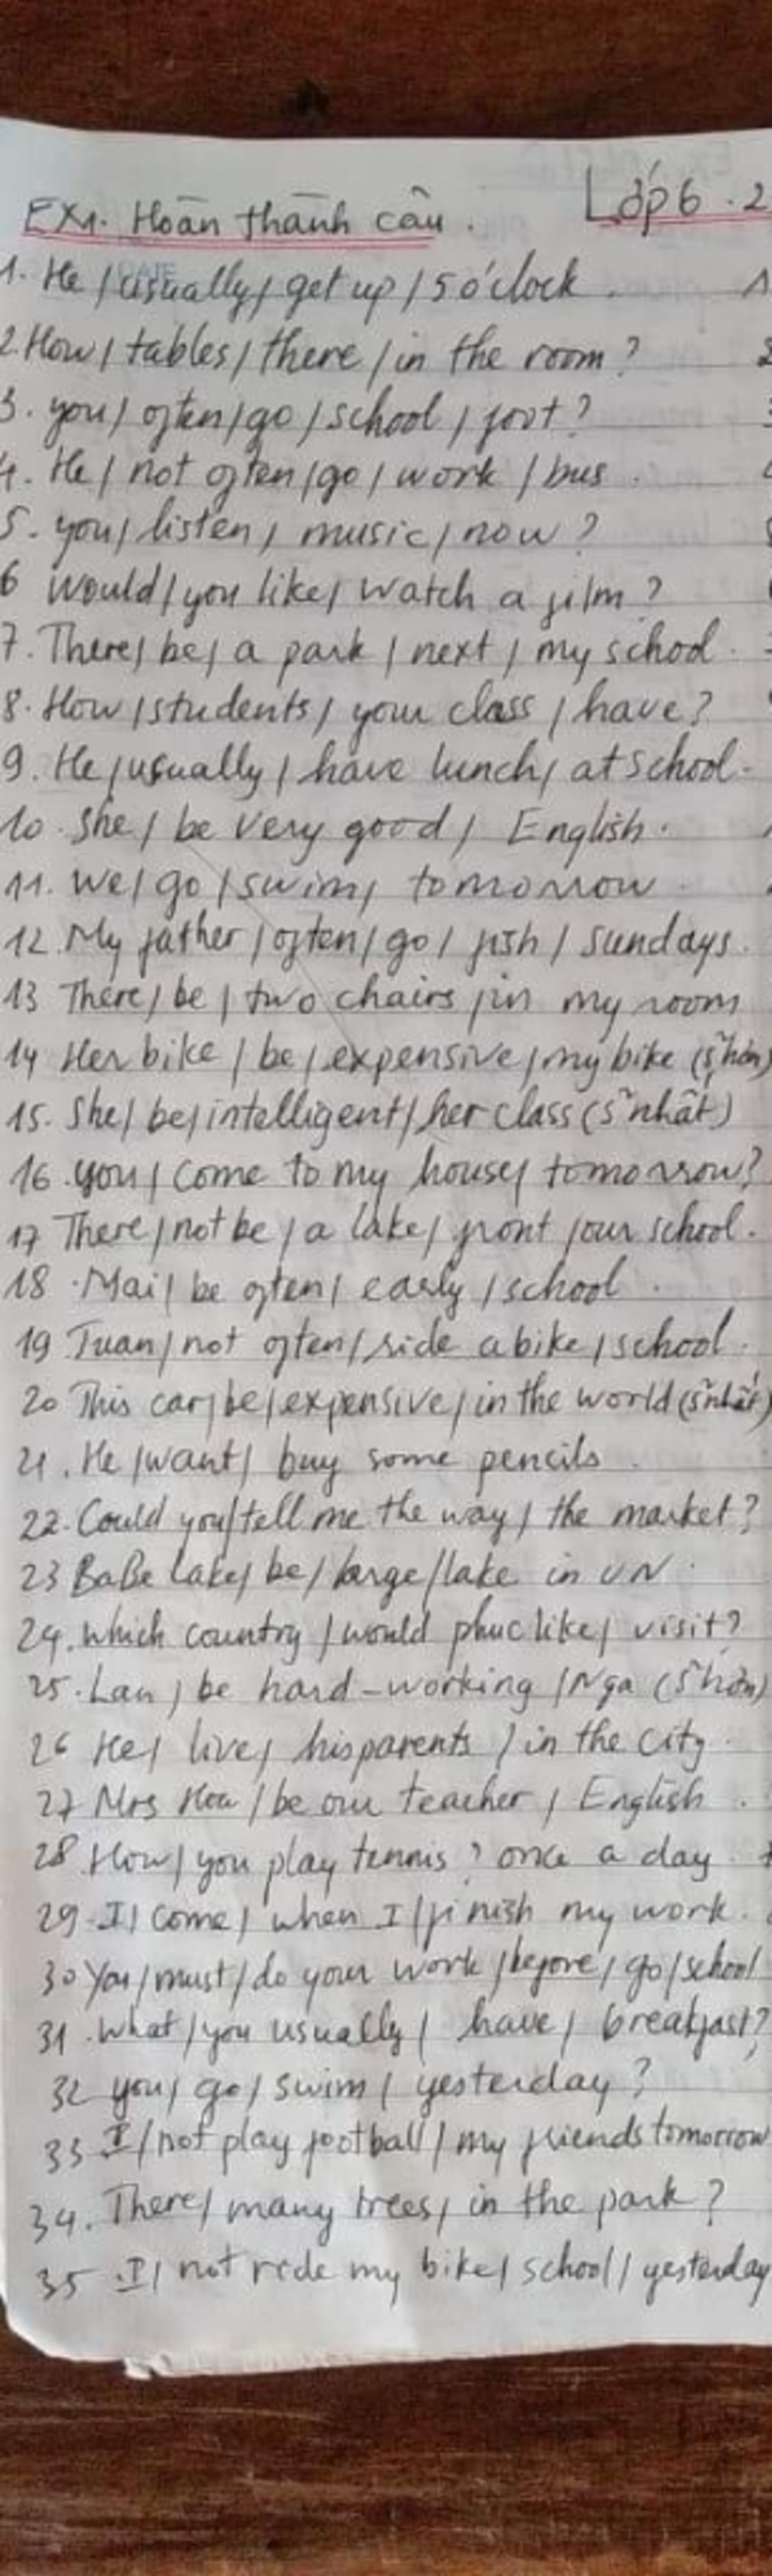 Lớp 6.2
EX1. Hoàn thành câu.
1. He / usually / get up / 5 o'clock.
2. How / tables / there / in the room?
3. you / often / go / school / foot?
4. He / not often / go / work / bus.
5. you / listen / music / now?
6 Would / you like / watch a film?
7. There / be / a park / next / my school.
8. How / students / your class / have?
9. He / usually / have lunch / at school.
10. She / be very good / English.
11. We / go / swim / tomorrow.
12. My father / often / go / fish / Sundays.
13 There / be / two chairs / in my room
14 Her bike / be / expensive / my bike (s² hơn)
15. She / be / intelligent / her class (s² nhất)
16. you / come to my house / tomorrow?
17 There / not be / a lake / front / our school.
18. Mai / be often / early / school.
19 Tuan / not often / ride a bike / school.
20 This car / be / expensive / in the world (s² nhất)
21. He / want / buy some pencils.
22. Could you / tell me the way / the market?
23 BaBe lake / be / large / lake in VN.
24. Which country / would phuc like / visit?
25. Lan / be hard-working / Nga (s² hơn)
26 He / live / his parents / in the city.
27 Mrs Hoa / be our teacher / English.
28 How / you play tennis? once a day
29. I / come / when I / finish my work.
30 You / must / do your work / before / go / school
31. What / you usually / have / breakfast?
32 you / go / swim / yesterday?
33 I / not play football / my friends tomorrow
34. There / many trees / in the park?
35. I / not ride my bike / school / yesterday